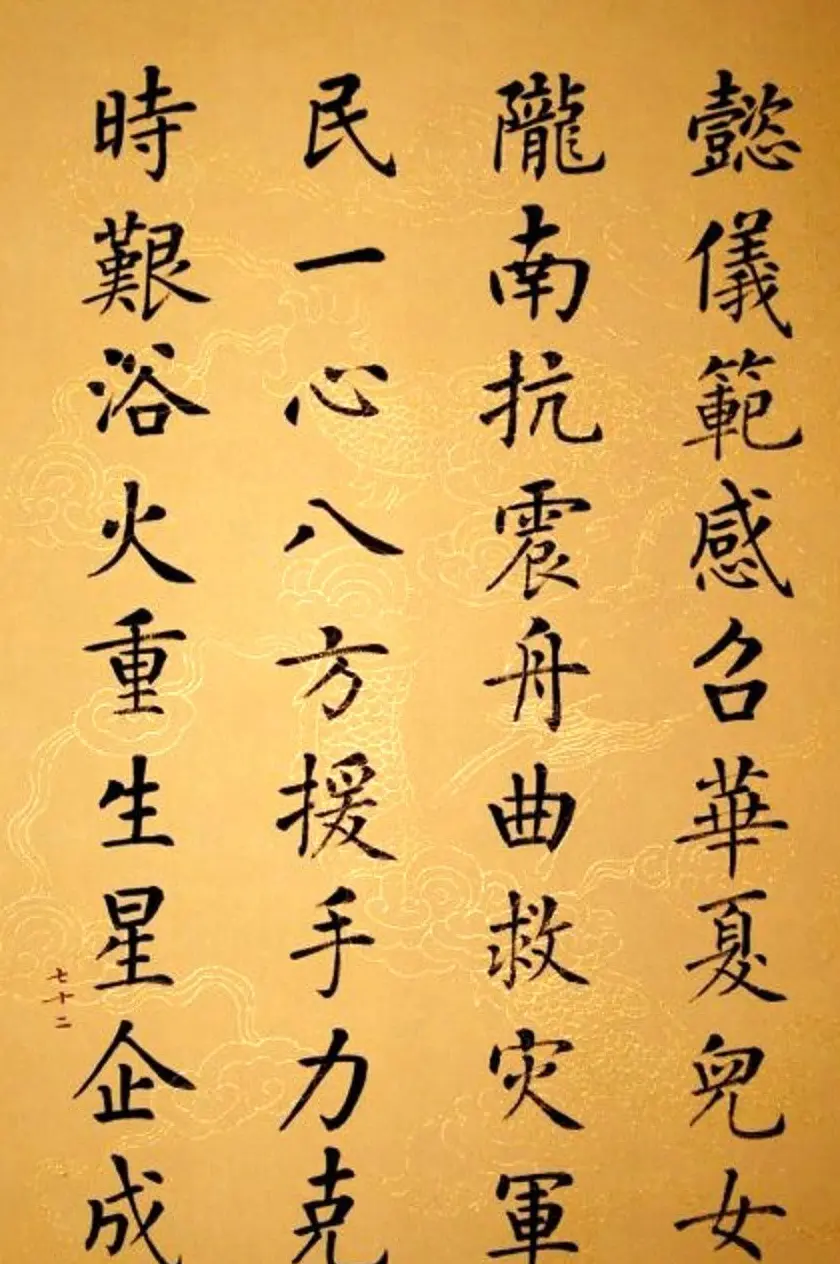 懿儀範感召華夏兒女
隴南抗震舟曲救灾軍
民一心八方援手力克
時艱浴火重生星企成
七十二